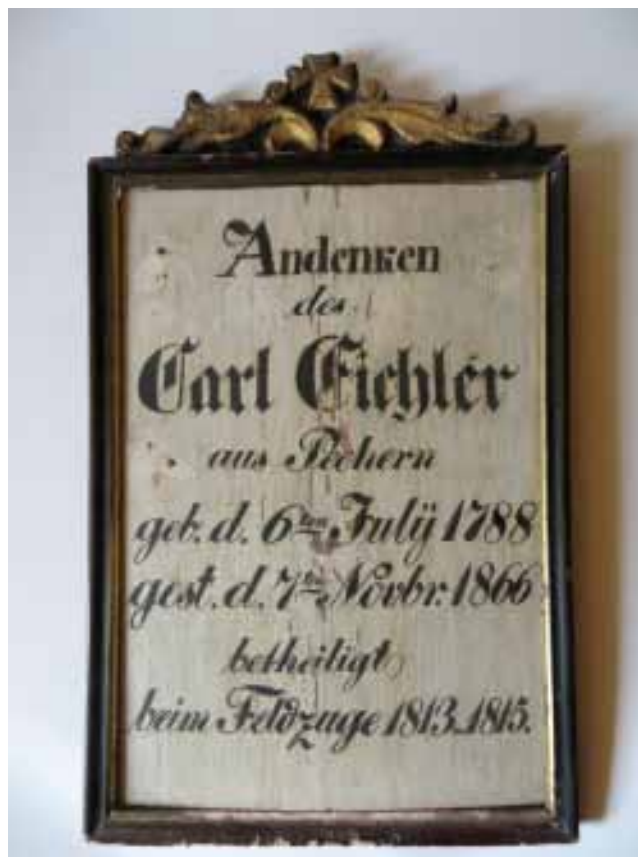 Andenken
des
Carl Eichler
aus Pechern
geb. d. 6ten Julÿ 1788
gest. d. 7ten Novbr. 1866
betheiligt
beim Feldzuge 1813-1815.